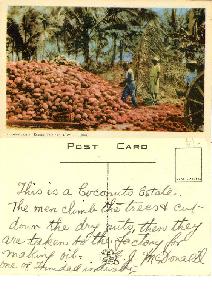 POST CARD
This is a Coconuts Estate.
The men climb the trees & cut
down the dry nuts, then they
are taken to the factory for
making oil.
J. McDonald
one of Trinidad industry